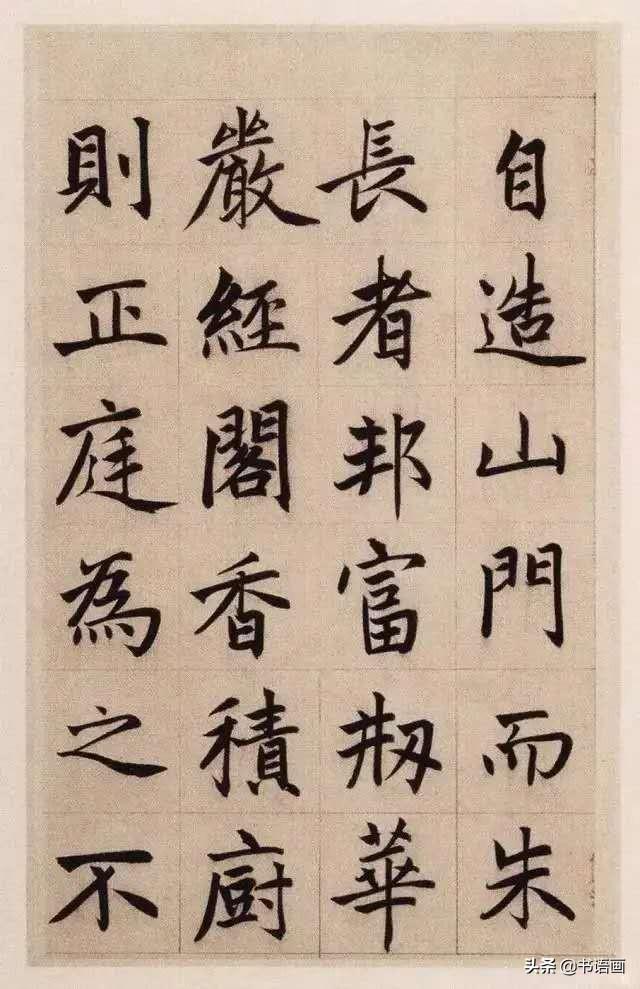 自造山門而朱
長者邦富剏華
嚴經閣香積廚
則正庭為之不
头条 @书语画